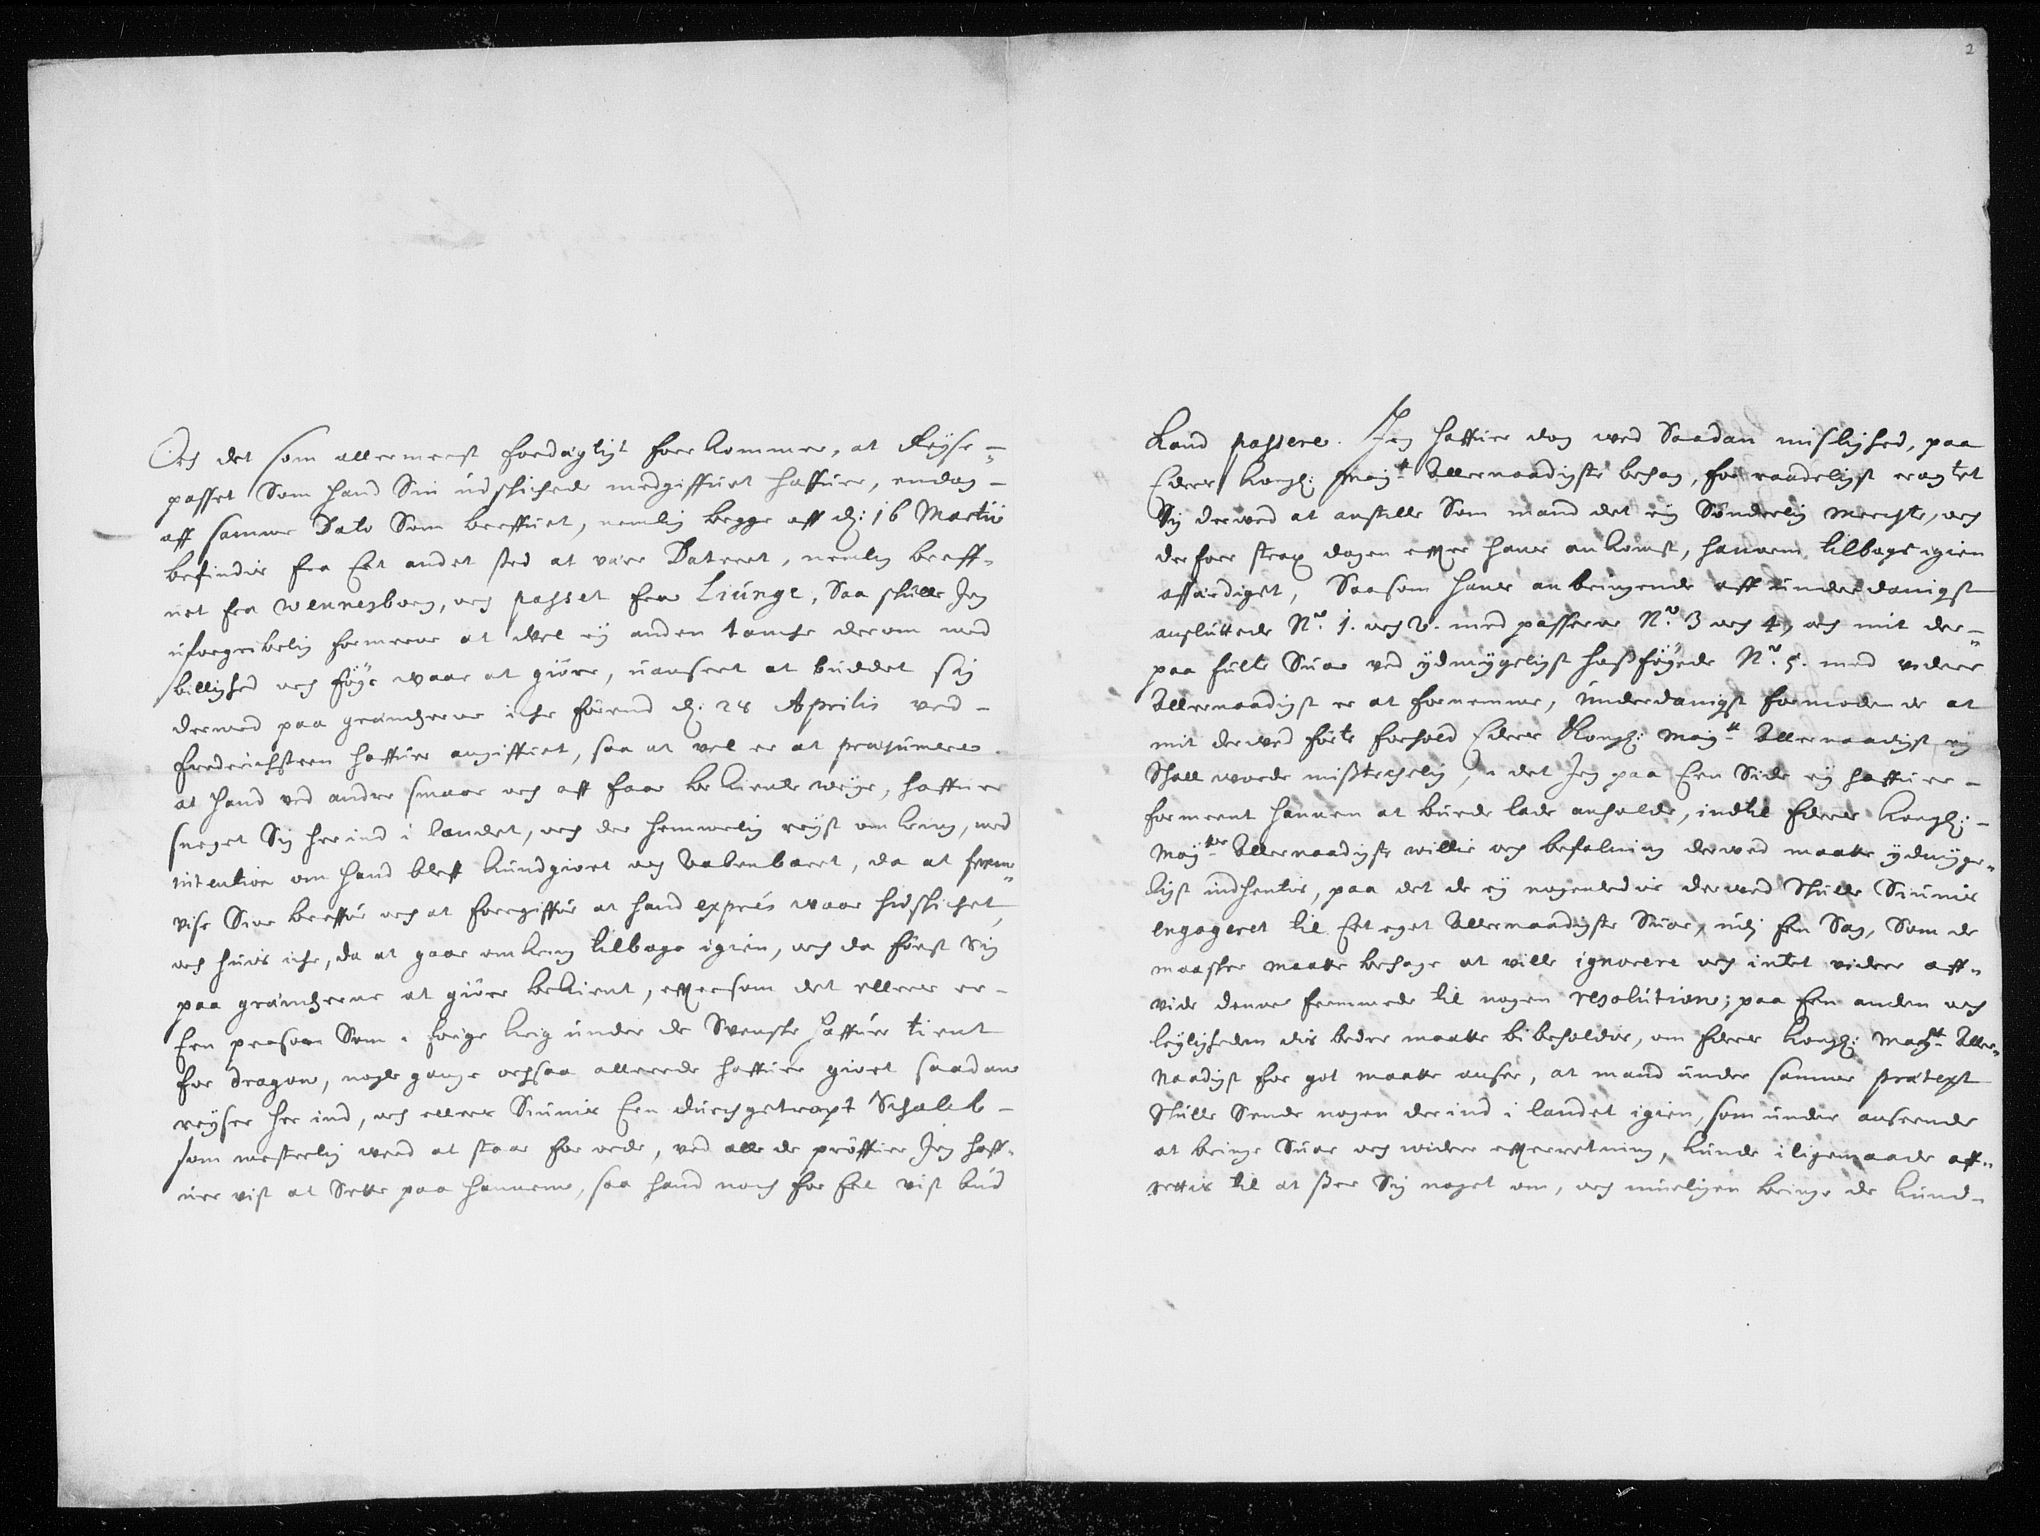 2
Och det som allermeest fordægtigt forekommer, at Reyse-
passet Som hand Sin udschichede medgiffuet haffuer, endog
aff samme Dato Som breffuet, nemlig begge aff d: 16 Martii
befindis fra Eet andet sted at vere Dateret, nemlig breff-
uet fra Wennersborg, och passet fra Liunge, Saa schulle Jeg
uforgribelig formeene at vel ey anden tanche derom med
billighed och føye vaar at giøre, uanseet at buddet sig
dermed paa grændserne iche førend d: 28 Aprilis ved
Frederichsteen haffuer angiffuet, saa at vel er at præsumere
at hand ved andre smaae och aff faae bekiente veye, haffuer
sneget Sig her ind i landet, och der hemmelig reyst omkring, med
intention om hand bleff kundgiort och Aabenbaret, da at frem-
vise Sine breffue och at foregiffue at hand exprés vaar hidschichet,
och huis iche, da at gaae omkring tilbage igien, och da først Sig
paa grændserne at giøre bekient, effter som det ellers er
Een person Som i forige krig under de Svenske haffuer tient
for dragon, nogle gange ochsaa allerede haffuer giort saadane
reyser her ind, och ellers Siunis Een durchgetrapt Schalch
som mesterlig veed at staae for rede, ved alle de prøffuer Jeg haff-
uer vist at Sette paa hannem, saa hand noch for Eet vist bud
kand passere. Jeg haffuer dog ved Saadan mislighed, paa
Eders Kongl: May:t Allernaadigste behag, for raadeligst eragtet
Sig derved at anstille Som mand det ey Sønderlig merchte, och
derfor strax dagen effter hans ankomst, hannem tilbage igien
affærdiget, Saasom hans anbringende aff underdanigst
ansluttede N:o 1. och 2. med passerne N:o 3 och 4, och mit der-
paa fulte Suar ved ydmygeligst hosføyede N:o 5. med videre
Allernaadigst er at fornemme, Underdanigst formodende at
mit derved førte forhold Eders Kongl: May:t Allernaadigst ey
Schall vorde mistechelig, i det Jeg paa Een Side ey haffuer
formeent hannem at burde lade anholde, indtil Eders Kongl:
May:ts Allernaadigste villie och befalning derved maatte ydmyge-
ligst indhentis, paa det de ey nogenledis derved Schulle Siunis
engageret til Eet eget Allernaadigste Suar, udj Een Sag, Som de
maaschee maatte behage at ville ignorere och intet videre aff-
vide denne fremmede til nogen resolution; paa Een anden och
leyligheden dis bedre maatte bibeholdes, om Eders Kongl: May:t Aller-
naadigst for got maatte ansee, at mand under samme prætext
Schulle Sende nogen der ind i landet igien, som under anseende
at bringe Suar och videre effterretning, kunde i ligemaade aff-
rettis til at see Sig noget om, och mueligen bringe de kund-